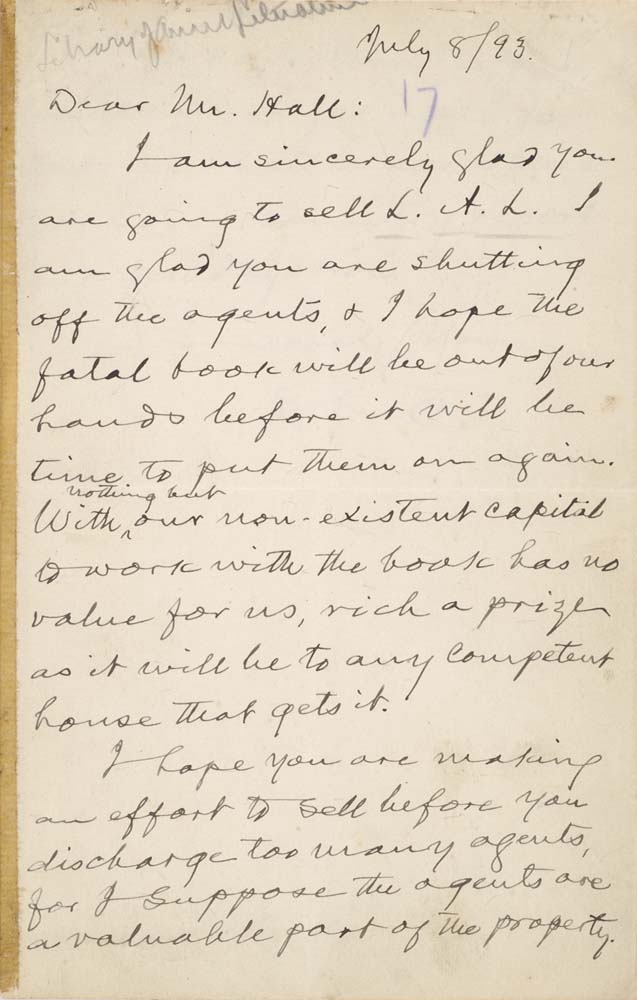 Library of Amn Literature
July 8/93.
17
Dear Mr. Hall:
I am sincerely glad you
are going to sell L. A. L. I
am glad you are shutting
off the agents, & I hope the
fatal book will be out of our
hands before it will be
time to put them on again.
nothing but
With our non-existent capital
to work with the book has no
value for us, rich a prize
as it will be to any competent
house that gets it.
I hope you are making
an effort to sell before you
discharge too many agents,
for I suppose the agents are
a valuable part of the property.